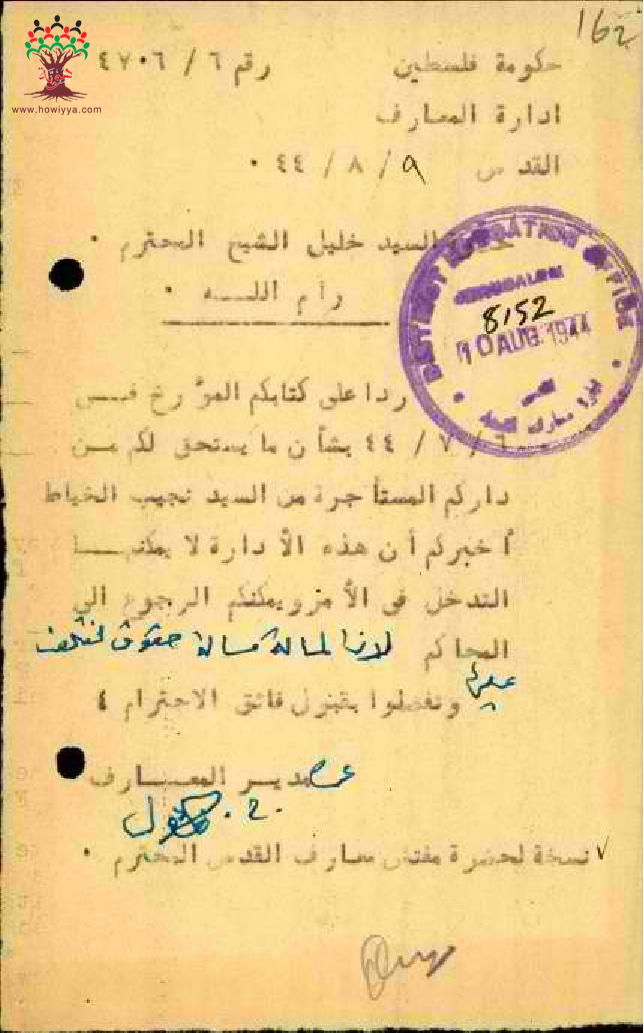 162
www.howiyya.com
حكومة فلسطين رقم ٦ / ٤٧٠٦
ادارة المعارف
القدس ٩ / ٨ / ٤٤ ٠
حضرة السيد خليل الشيخ المحترم ٠
رام اللــه ٠
DISTRICT EDUCATION OFFICE
JERUSALEM
8152
10 AUG 1944
القدس
ردا على كتابكم المؤرخ فــي
٦ / ٧ / ٤٤ بشأن ما يستحق لكم مــن
داركم المستأجرة من السيد نجيب الخياط
أخبركم أن هذه الأدارة لا يمكنهــا
التدخل في الأمر ويمكنكم الرجوع الى
المحاكم لان المسالة مسالة حقوق مختلف
عليها
وتفضلوا بقبول فائق الاحترام ٤
ع مديــر المعــارف
نسخة لحضرة مفتش معارف القدس المحترم ٠